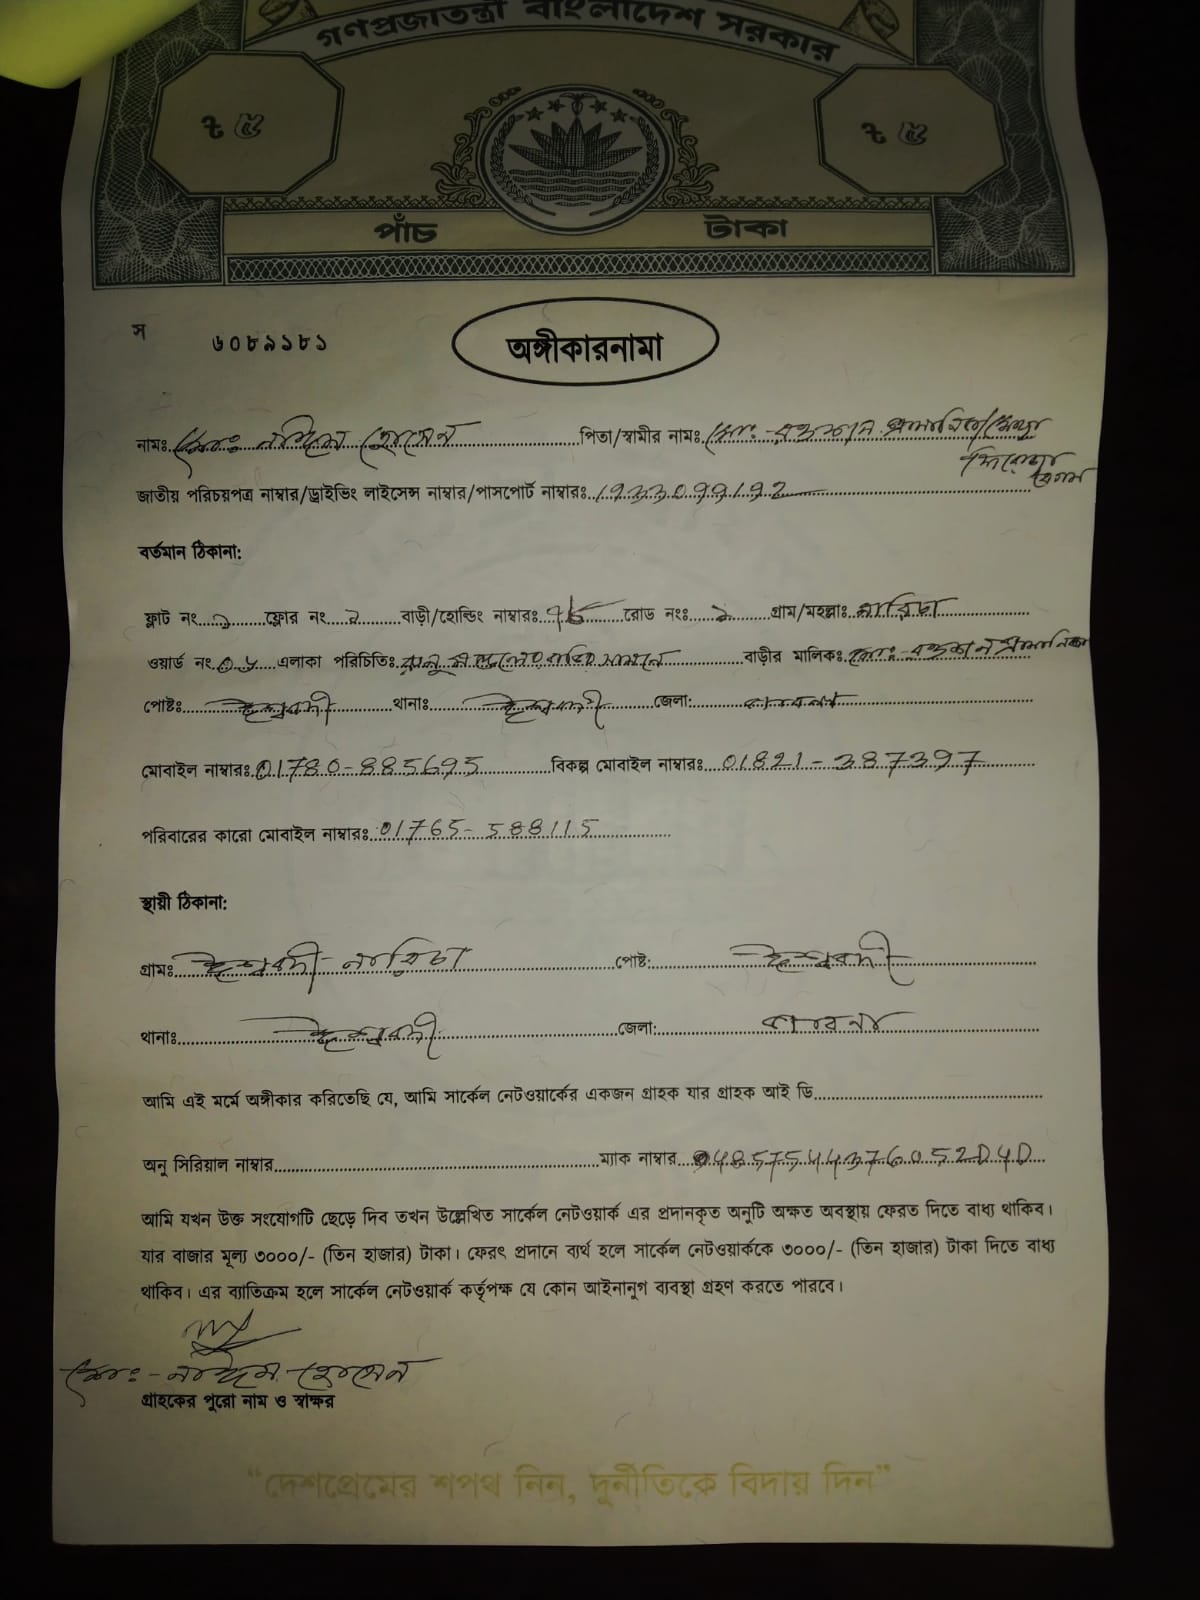 গণপ্রজাতন্ত্রী বাংলাদেশ সরকার
ট ৫ ট ৫
পাঁচ টাকা
স ৬০৮৯১৮১
অঙ্গীকারনামা
নামঃ মোঃ হোসেন পিতা/স্বামীর নামঃ মোঃ
বেগম
জাতীয় পরিচয়পত্র নাম্বার/ড্রাইভিং লাইসেন্স নাম্বার/পাসপোর্ট নাম্বারঃ 1933099192
বর্তমান ঠিকানা:
ফ্লাট নং ফ্লোর নং ২ বাড়ী/হোল্ডিং নাম্বারঃ রোড নংঃ গ্রাম/মহল্লাঃ নারিচা
ওয়ার্ড নং এলাকা পরিচিতিঃ বাড়ির সামনে বাড়ীর মালিকঃ মোঃ
পোষ্টঃ ঈশ্বরদী থানাঃ ঈশ্বরদী জেলা: পাবনা
মোবাইল নাম্বারঃ 01780-885695 বিকল্প মোবাইল নাম্বারঃ 01821-387397
পরিবারের কারো মোবাইল নাম্বারঃ 01765-588115
স্থায়ী ঠিকানা:
গ্রামঃ ঈশ্বরদী নারিচা পোষ্ট: ঈশ্বরদী
থানাঃ ঈশ্বরদী জেলা: পাবনা
আমি এই মর্মে অঙ্গীকার করিতেছি যে, আমি সার্কেল নেটওয়ার্কের একজন গ্রাহক যার গ্রাহক আই ডি
অনু সিরিয়াল নাম্বার ম্যাক নাম্বার 4857544376052D4D
আমি যখন উক্ত সংযোগটি ছেড়ে দিব তখন উল্লেখিত সার্কেল নেটওয়ার্ক এর প্রদানকৃত অনুটি অক্ষত অবস্থায় ফেরত দিতে বাধ্য থাকিব।
যার বাজার মূল্য ৩০০০/- (তিন হাজার) টাকা। ফেরৎ প্রদানে ব্যর্থ হলে সার্কেল নেটওয়ার্ককে ৩০০০/- (তিন হাজার) টাকা দিতে বাধ্য
থাকিব। এর ব্যাতিক্রম হলে সার্কেল নেটওয়ার্ক কর্তৃপক্ষ যে কোন আইনানুগ ব্যবস্থা গ্রহণ করতে পারবে।
মোঃ - নাঈম হোসেন
গ্রাহকের পুরো নাম ও স্বাক্ষর
“দেশপ্রেমের শপথ নিন, দুর্নীতিকে বিদায় দিন”